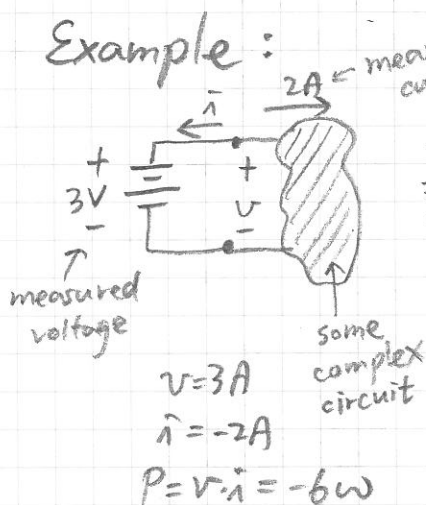 Example :
2A ←
i
+
3V
-
+
v
-
measured
voltage
some
complex
circuit
v=3A
i=-2A
P=v·i=-6w